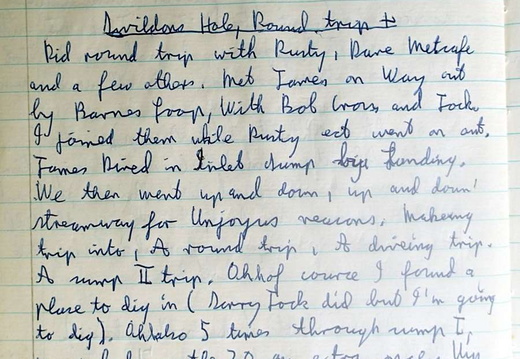 Swildons Hole, Round trip +
Did round trip with Rusty, Dave Metcafe
and a few others. Met James on Way out
by Barnes Loop, With Bob Cross and Jock.
I joined them while Rusty ect went on out.
James Dived in Inlet sump
We then went up and down, up and down
streamway for Unjoyus reasons. Makeing
trip into, A round trip, A driveing trip.
A sump II trip. Ohhof cource I found a
place to dig in ( Jock did but I'm going
to dig). Ohalso 5 times through sump I,
the 20